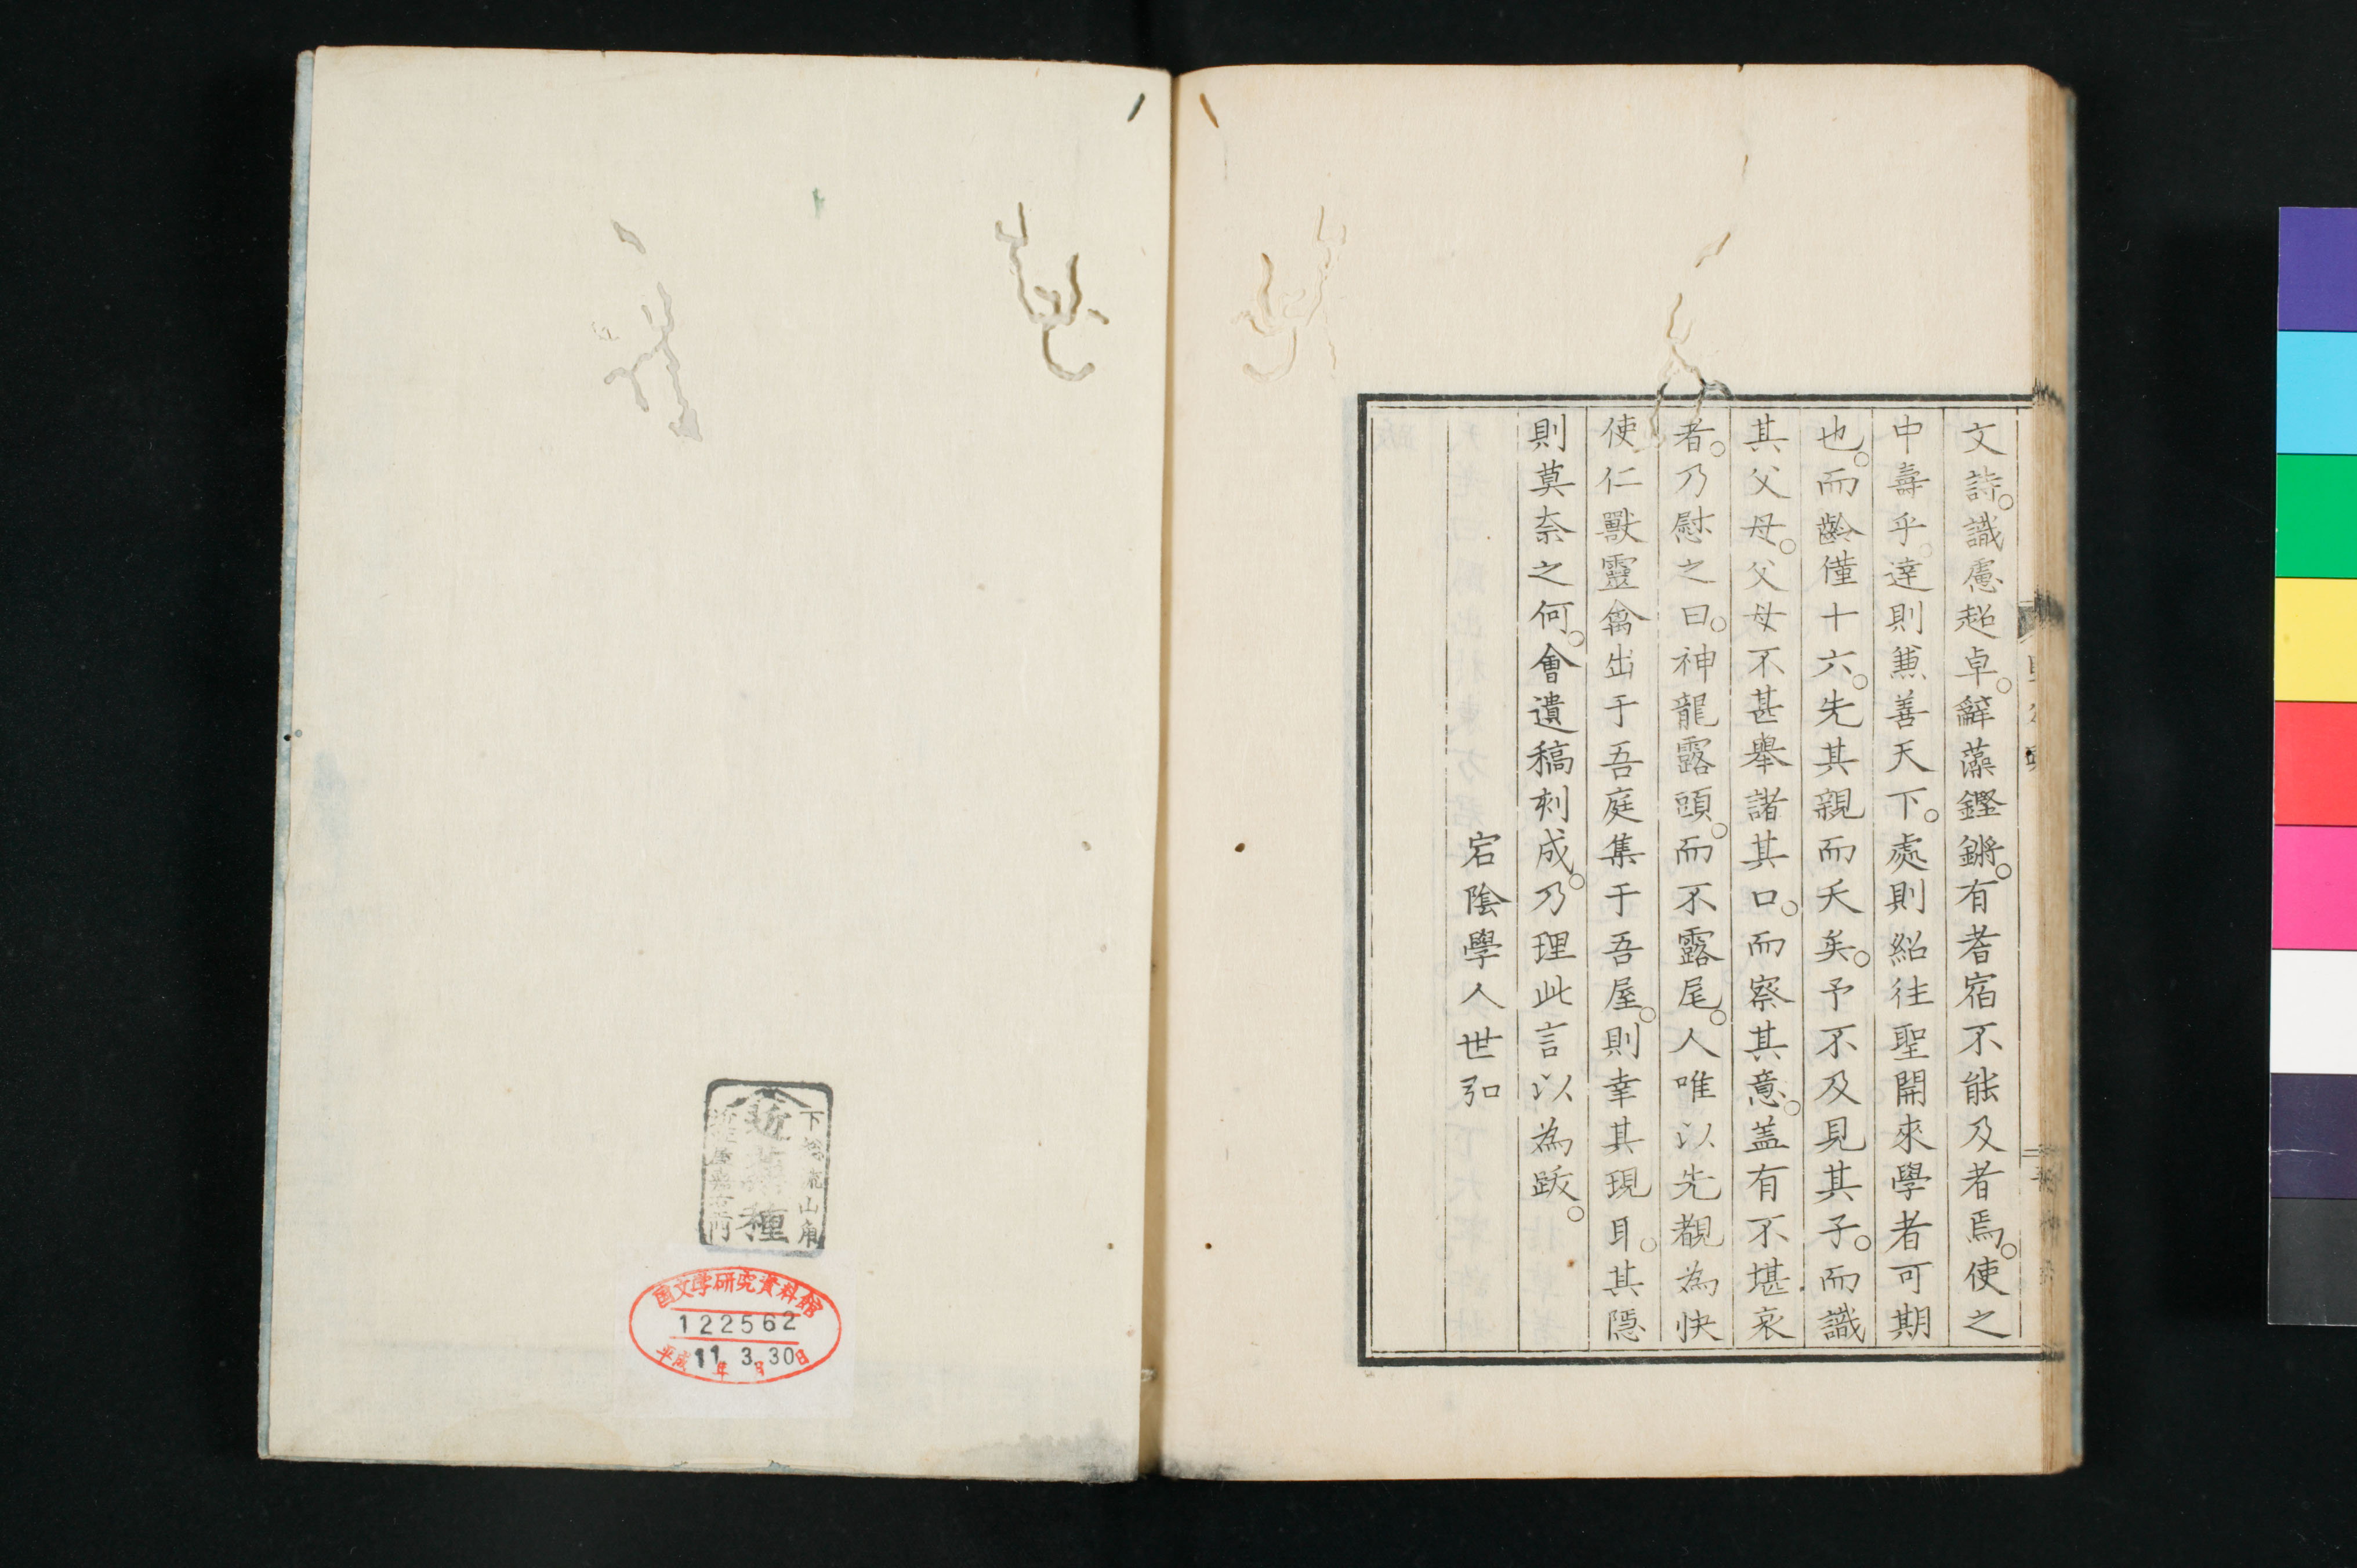 文詩。識慮超卓。辭藻鏗鏘。有耆宿不能及者焉。使之
中壽乎。達則兼善天下。處則紹往聖開來學者可期
也。而齡僅十六。先其親而夭矣。予不及見其子。而識
其父母。父母不甚舉諸其口。而察其意。蓋有不堪哀
者。乃慰之曰。神龍露頭。而不露尾。人唯以先覩為快
使仁獸靈禽出于吾庭集于吾屋。則幸其現耳。其隱
則莫奈之何。會遺稿刻成。乃理此言以為跋。
宕陰學人世弘
下総流山角
近藤種
国文学研究資料館
122562
平成11年3月30日